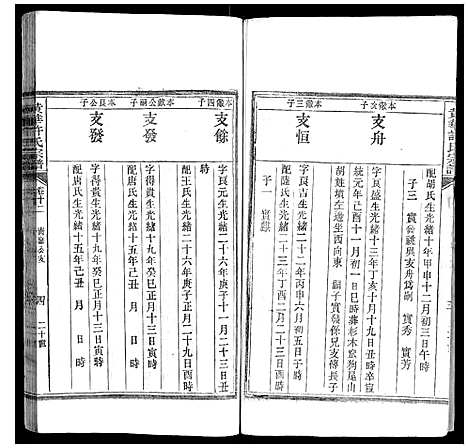 黃華許氏宗譜
配胡氏生光緒十年甲申十二月初三日午時
子三 實公祧與支舟爲嗣 實秀 實芳
本儆次子
支舟
字良盛生光緒十三年丁亥十月十九日丑時卒宣
統元年己酉十一月初一日巳時葬杉木狗尾山
胡姓墳左邊坐西向東 嗣子實發係兄支傳長子
本儆三子
支恒
字良吉生光緒二十二年丙申六月初五日子時
配薩氏生光緒二十三年丁酉二月二十三日丑時
子一 實麒
本儆四子
支餘
字良元生光緒二十六年庚子十一月二十三日丑
時
配王氏生光緒二十六年庚子正月二十九日酉時
本儆公嗣子
支發
字得貴生光緒十九年癸巳正月十三日寅時
配唐氏生光緒十五年己丑 月 日 時
本良公子
支發
字得貴生光緒十九年癸巳正月十三日寅時
配唐氏生光緒十五年己丑 月 日 時
黃華許氏宗譜
四
二十世